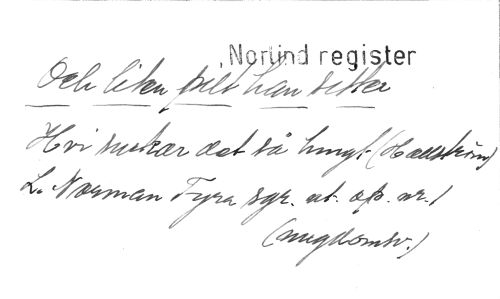 Norlind register
Och liten pilt han sitter
Hvi suckar det så tungt (Hallström)
L. Norman Fyra sgr. ut. op. nr. 1
(ungdomsv.)